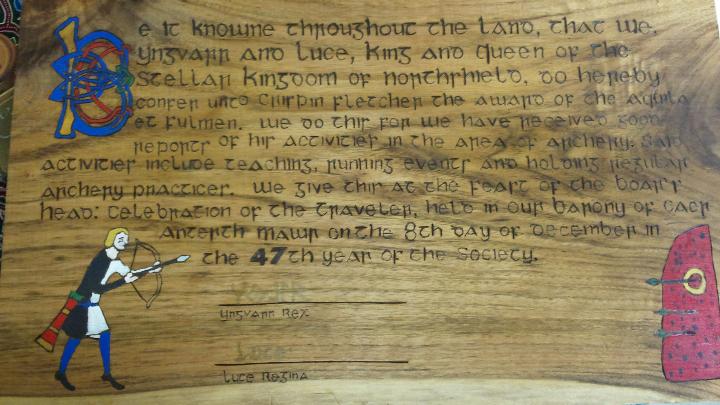 Be it knowne throughout the land, that we,
Yngvarr and Luce, King and Queen of the
Stellar Kingdom of Northshield, do hereby
confer unto Crispin Fletcher the award of the Aquila
et Fulmen. We do this for we have received good
reports of his activities in the area of archery. Said
activities include teaching, running events and holding regular
archery practices. We give this at the feast of the boar's
head: Celebration of the Traveler, held in our barony of Caer
Anterth Mawr on the 8th day of December in
the 47th year of the Society.
Yngvarr Rex
Luce
Luce Regina